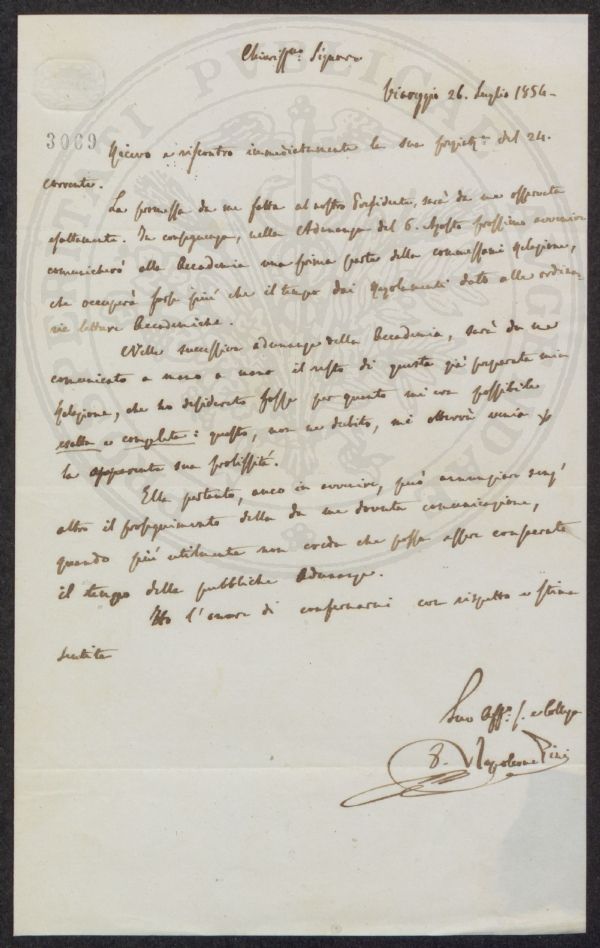 Chiariss.mo Signore
Viareggio 26. Luglio 1854.
3069
Ricevo e riscontro immediatamente la sua pregiat.ma del 24.
corrente.
La promessa da me fatta al nostro Presidente, sarà da me osservata
esattamente. In conseguenza, nella Adunanza del 6. Agosto prossimo avvenire
comunicherò alla Accademia una prima parte della commessami Relazione,
che occuperà forse più che il tempo dai Regolamenti dato alle ordina-
rie letture Accademiche.
Nelle successive adunanze della Accademia, sarà da me
comunicato a mano a mano il resto di questa già preparata mia
Relazione, che ho desiderato fosse per quanto mi era possibile
esatta e completa: questo, non ne dubito, mi otterrà venia per
la apparente sua prolissità.
Ella pertanto, anco in avvenire, può annunziare senz'
altro il proseguimento della da me dovuta comunicazione,
quando più utilmente non creda che possa essere comparato
il tempo delle pubbliche Adunanze.
Ho l'onore di confermarmi con rispetto e stima
sentita
Suo Aff.o S. e Collega
Napoleone Pini
PROSPERITATI PUBLICAE AUGENDAE